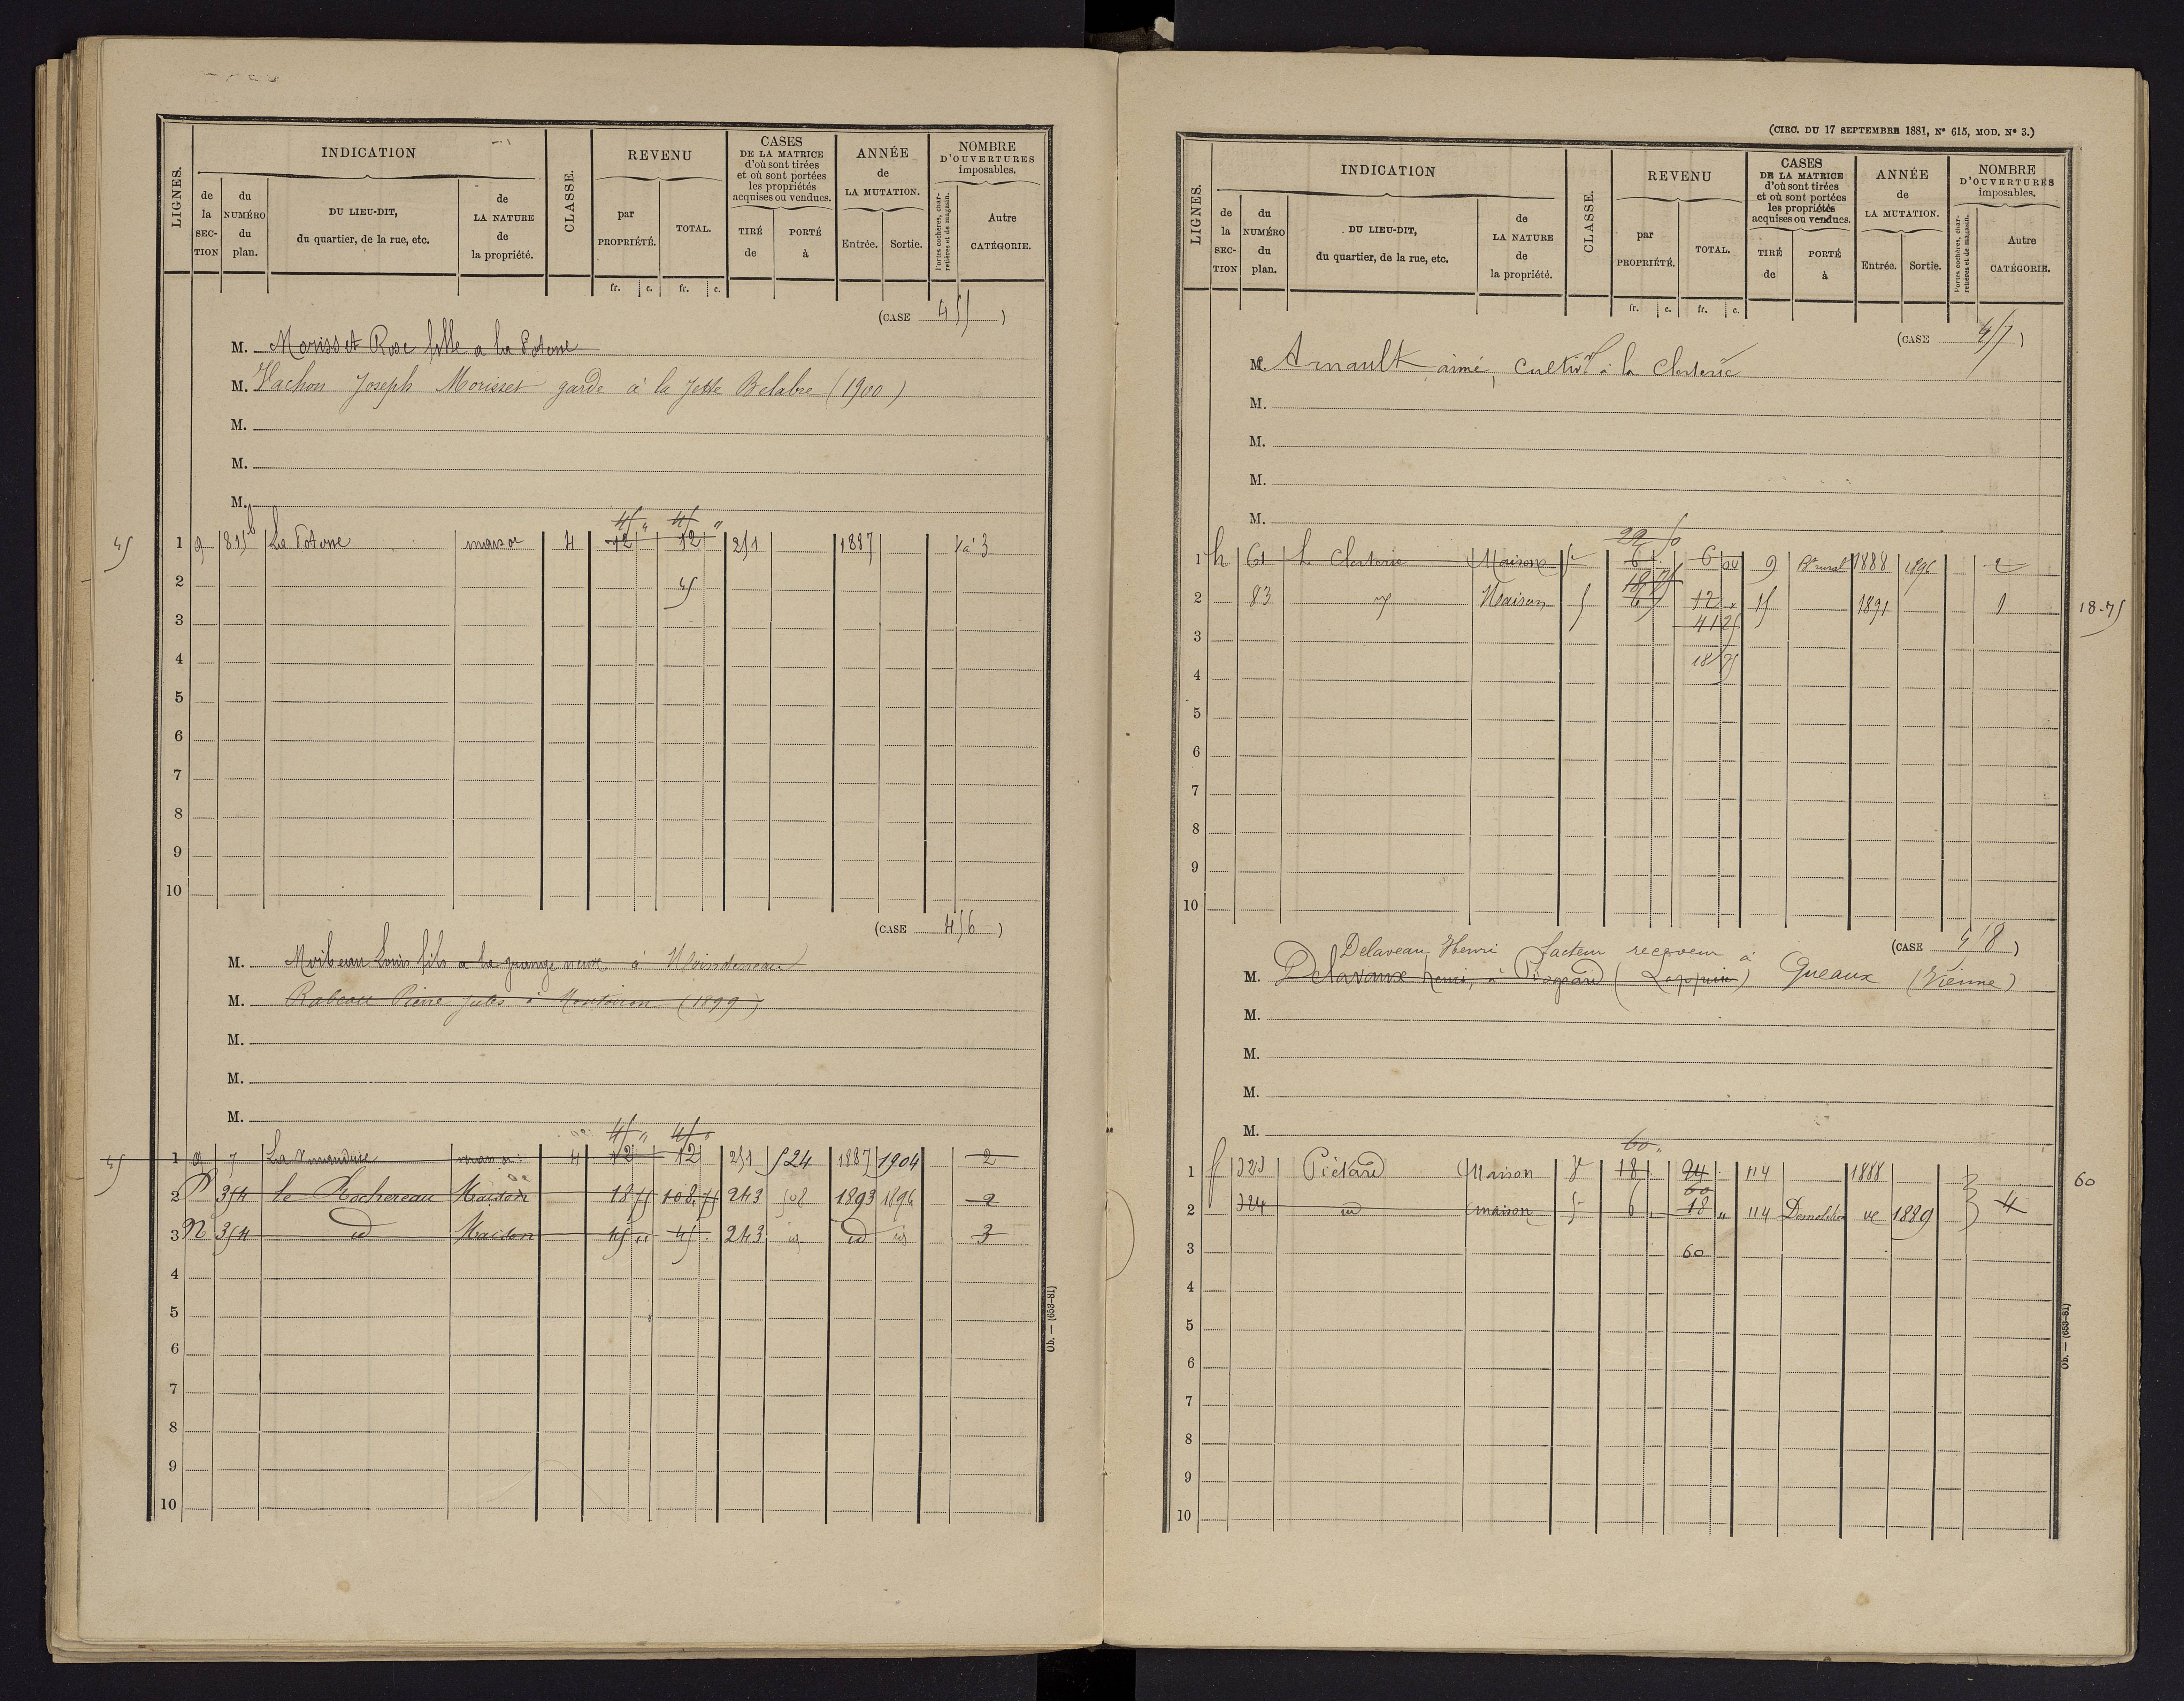 LIGNES.
INDICATION
de la SECTION
du NUMÉRO du plan.
DU LIEU-DIT, du quartier, de la rue, etc.
de LA NATURE de la propriété.
CLASSE.
REVENU
par PROPRIÉTÉ.
TOTAL.
CASES DE LA MATRICE d'où sont tirées et où sont portées les propriétés acquises ou vendues.
TIRÉ de
PORTÉ à
ANNÉE de LA MUTATION.
Entrée.
Sortie.
NOMBRE D'OUVERTURES imposables.
Portes cochères, charretières et de magasin.
Autre CATÉGORIE.
fr. c. fr. c.
(CASE 455)
M. Morisset Rose fille a la
M. Vachon Joseph Morisset garde à la Jette Belabre (1900)
M.
M.
M.
45 " 45 "
45 1 g 815 b maison 4 12 12 251 1887 1 à 3
2 45
3
4
5
6
7
8
9
10
(CASE 456)
M. Louis fils a la grange neuve à
M. Rabeau Pierre Jules à (1899)
M.
M.
M.
45 " 45 "
45 1 g 7 La maison 4 12 12 251 524 1887 1904 2
2 354 le Rochereau Maison 18 75 108 75 243 508 1893 1896 2
3 N 354 id Maison 45 " 45 243 id id id 3
4
5
6
7
8
9
10
Ob. — (653-81)
(CIRC. DU 17 SEPTEMBRE 1881, N° 615, MOD. N° 3.)
LIGNES.
INDICATION
de la SECTION
du NUMÉRO du plan.
DU LIEU-DIT, du quartier, de la rue, etc.
de LA NATURE de la propriété.
CLASSE.
REVENU
par PROPRIÉTÉ.
TOTAL.
CASES DE LA MATRICE d'où sont tirées et où sont portées les propriétés acquises ou vendues.
TIRÉ de
PORTÉ à
ANNÉE de LA MUTATION.
Entrée.
Sortie.
NOMBRE D'OUVERTURES imposables.
Portes cochères, charretières et de magasin.
Autre CATÉGORIE.
fr. c. fr. c.
(CASE 457)
M. Arnault aimé, cultivr à la
M.
M.
M.
M.
22 50
1 h 61 Maison 5 6 6 9 Bt rural 1888 1896 2
18 75
2 83 Maison 5 6 12 15 1891 1 18-75
3 41 25
4 18 75
5
6
7
8
9
10
(CASE 458)
Delaveau Henri facteur receveur à
M. Delavaux henri, à Queaux (Vienne)
M.
M.
M.
M.
60 "
1 f 323 Piétard Maison 18 24 114 1888 60
60
2 324 id maison 5 6 18 " 114 Demolition 1889 4
3 60
4
5
6
7
8
9
10
Ob. — (653-81)